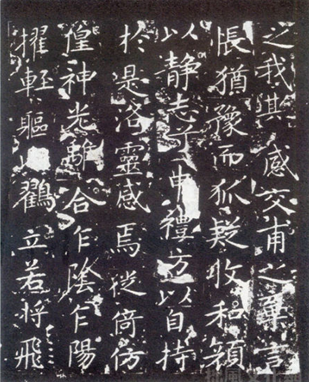 之我欺感交甫之棄言
悵猶豫而狐疑收和顏
以静志兮申禮方以自持
於是洛靈感焉徙倚仿
偟神光離合乍陰乍陽
擢輕軀以鶴立若將飛